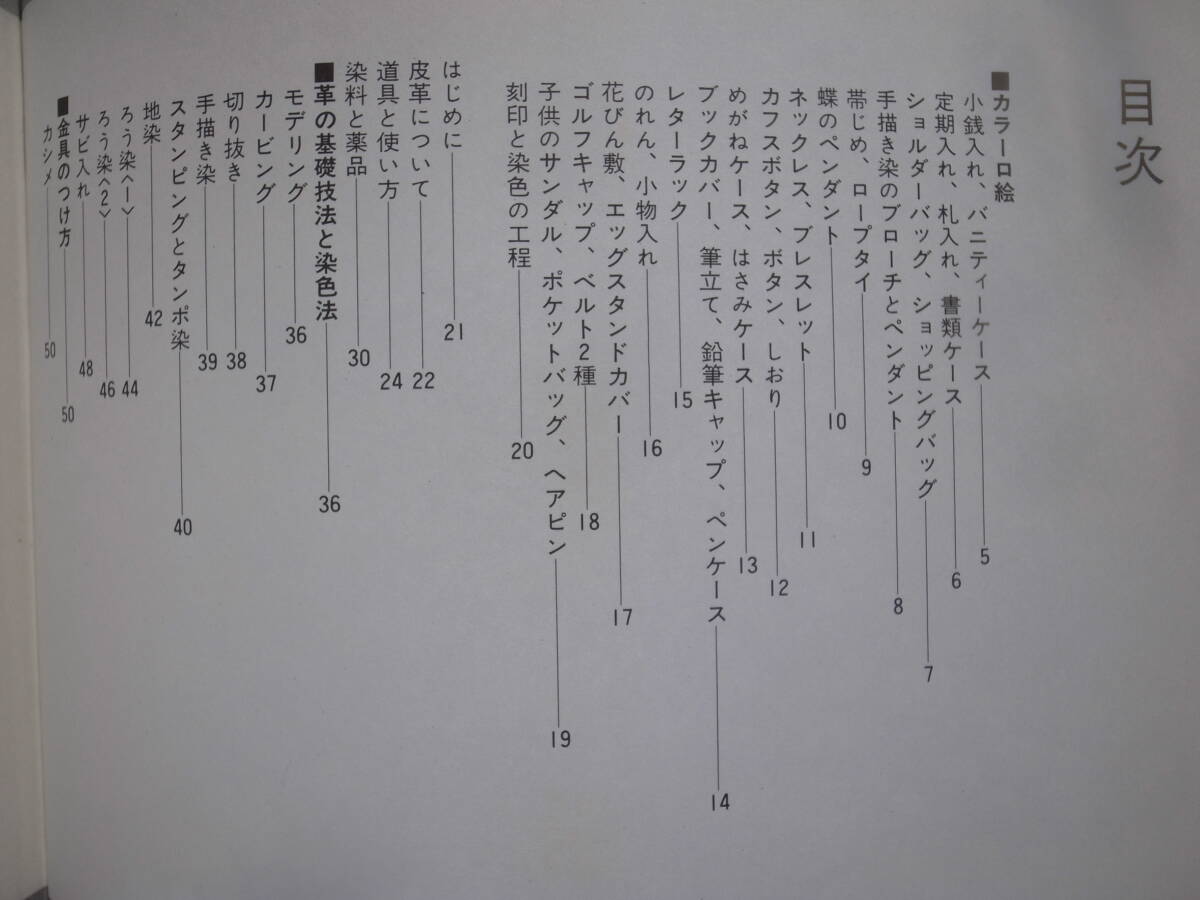 目次
■カラー口絵
小銭入れ、バニティーケース 5
定期入れ、札入れ、書類ケース 6
ショルダーバッグ、ショッピングバッグ 7
手描き染のブローチとペンダント 8
帯じめ、ロープタイ 9
蝶のペンダント 10
ネックレス、ブレスレット 11
カフスボタン、ボタン、しおり 12
めがねケース、はさみケース 13
ブックカバー、筆立て、鉛筆キャップ、ペンケース 14
レターラック 15
のれん、小物入れ 16
花びん敷、エッグスタンドカバー 17
ゴルフキャップ、ベルト2種 18
子供のサンダル、ポケットバッグ、ヘアピン 19
刻印と染色の工程 20
はじめに 21
皮革について 22
道具と使い方 24
染料と薬品 30
■革の基礎技法と染色法 36
モデリング 36
カービング 37
切り抜き 38
手描き染 39
スタンピングとタンポ染 40
地染 42
ろう染〈1〉 44
ろう染〈2〉 46
サビ入れ 48
■金具のつけ方 50
カシメ 50